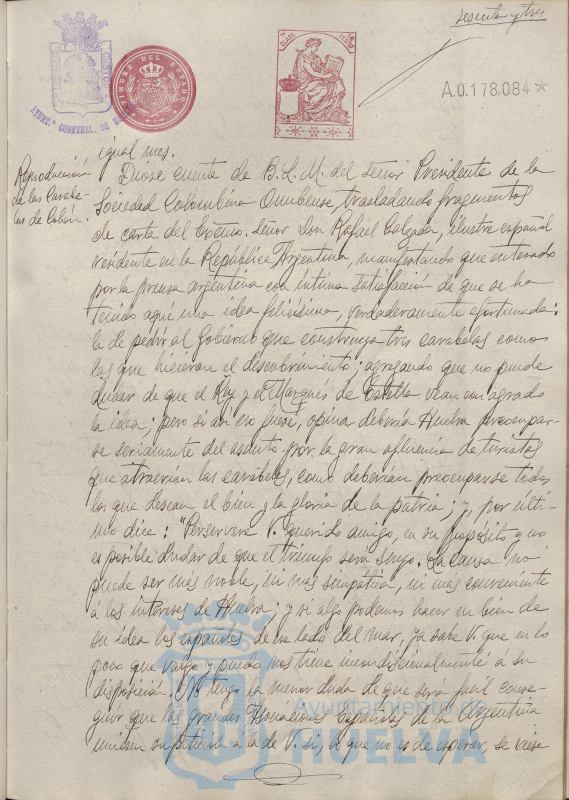 sesenta y tres
AYUNT.º CONSTNAL. DE
TIMBRE DEL ESTADO
A.0.178.084*
igual mes.
Reproducción
de las Carabe-
las de Colón.
Diose cuenta de B. L. M. del señor Presidente de la
Sociedad Colombina Onubense, trasladando fragmentos
de carta del Excmo. Señor Don Rafael Calzada, ilustre español
residente en la República Argentina, manifestando que enterado
por la prensa argentina con íntima satisfacción de que se ha
tenido aquí una idea felicísima, verdaderamente afortunada:
la de pedir al Gobierno que construya tres carabelas como
las que hicieron el descubrimiento; agregando que no puede
dudar de que el Rey y el Marqués de Estella vean con agrado
la idea; pero si así no fuese, opina debería Huelva preocupar-
se seriamente del asunto por la gran afluencia de turistas
que atraerían las carabelas, como deberían preocuparse todos
los que desean el bien y la gloria de la patria; y, por últi-
mo dice: "Persevere V. querido amigo, en su propósito y no
es posible dudar de que el triunfo será suyo. La causa no
puede ser más noble, ni mas simpática, ni mas conveniente
á los intereses de Huelva; y si algo podemos hacer en bien de
su idea los españoles de ese lado del mar, ya sabe V. que en lo
poco que valgo y puedo me tiene incondicionalmente á su
disposición. No tengo la menor duda de que será fácil conse-
guir que las grandes Asociaciones Españolas de la Argentina
uniesen su petición a la de V. si, lo que no es de esperar, se viese
Ayuntamiento de
HUELVA